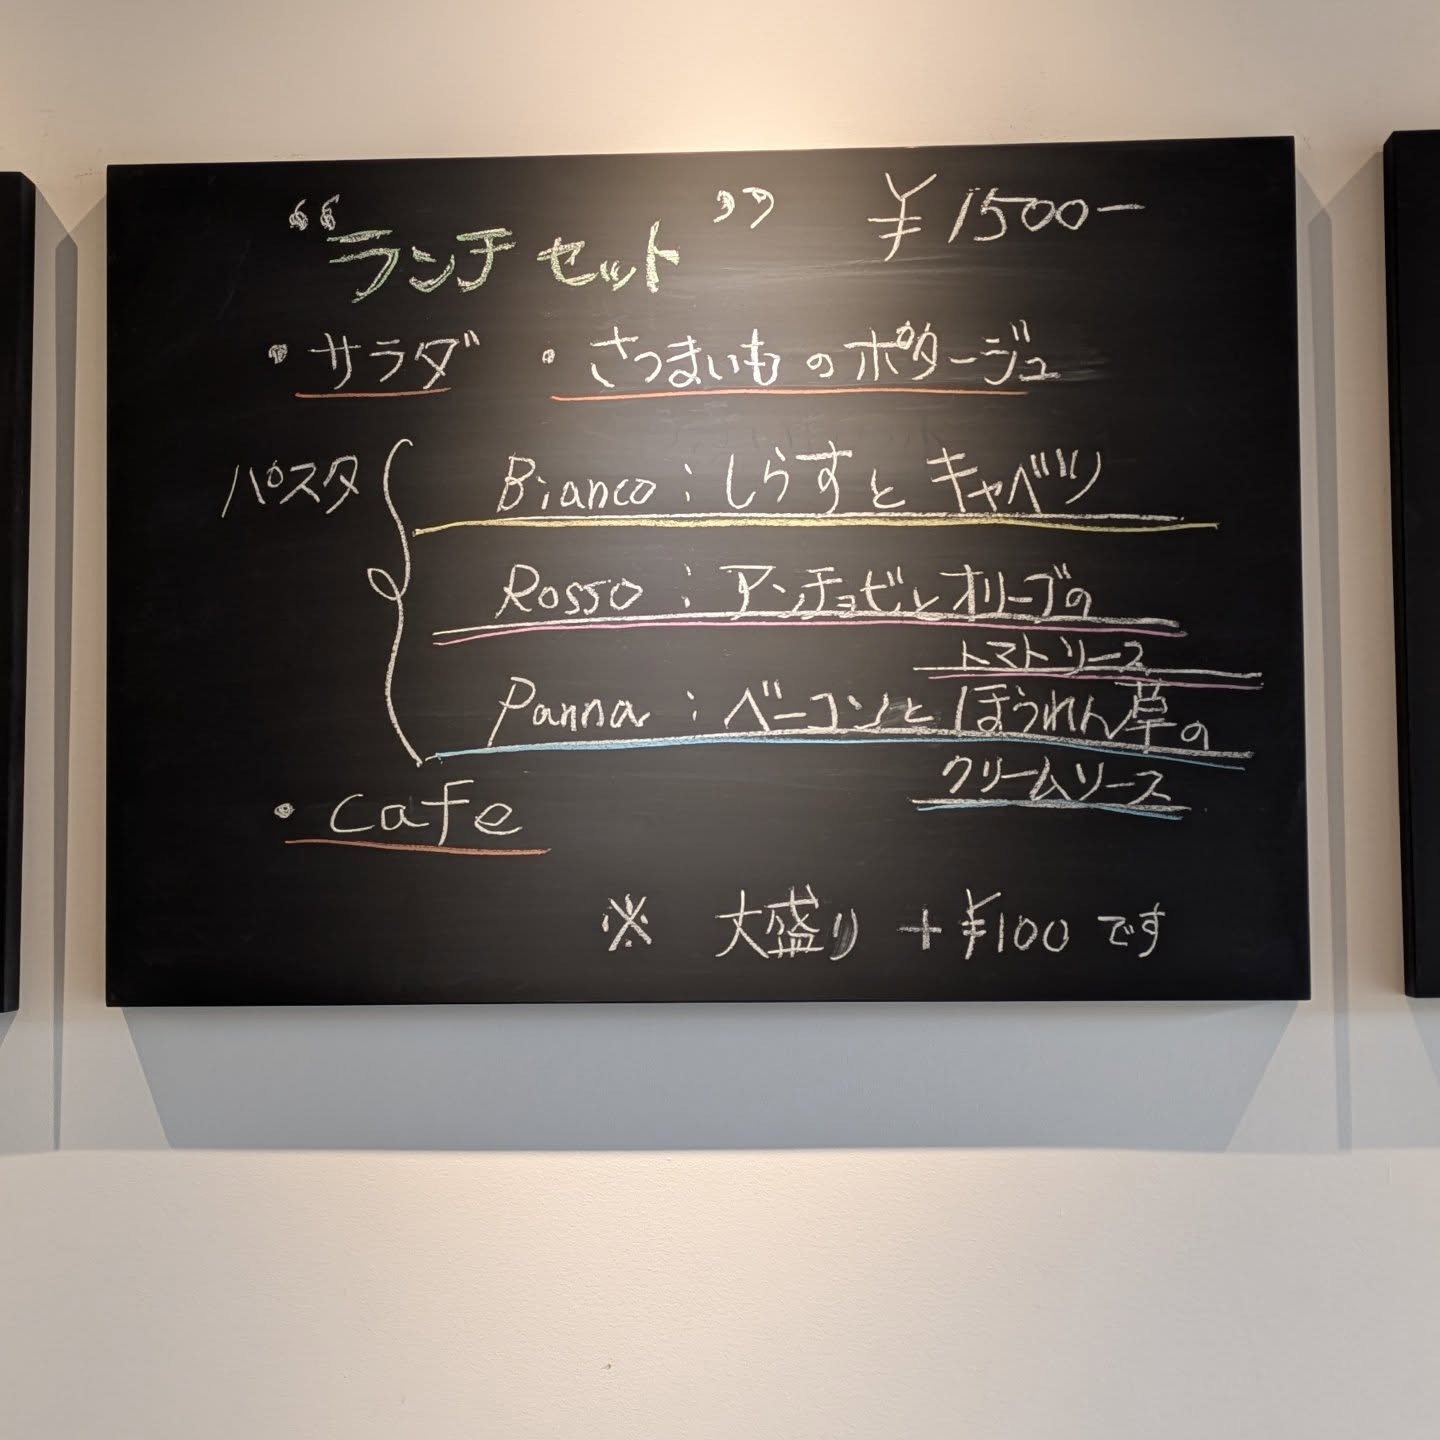 “ランチセット” ¥1500-
・サラダ ・さつまいものポタージュ
パスタ
Bianco：しらすとキャベツ
Rosso：アンチョビとオリーブの
トマトソース
Panna：ベーコンとほうれん草の
クリームソース
・cafe
※ 大盛り +¥100です